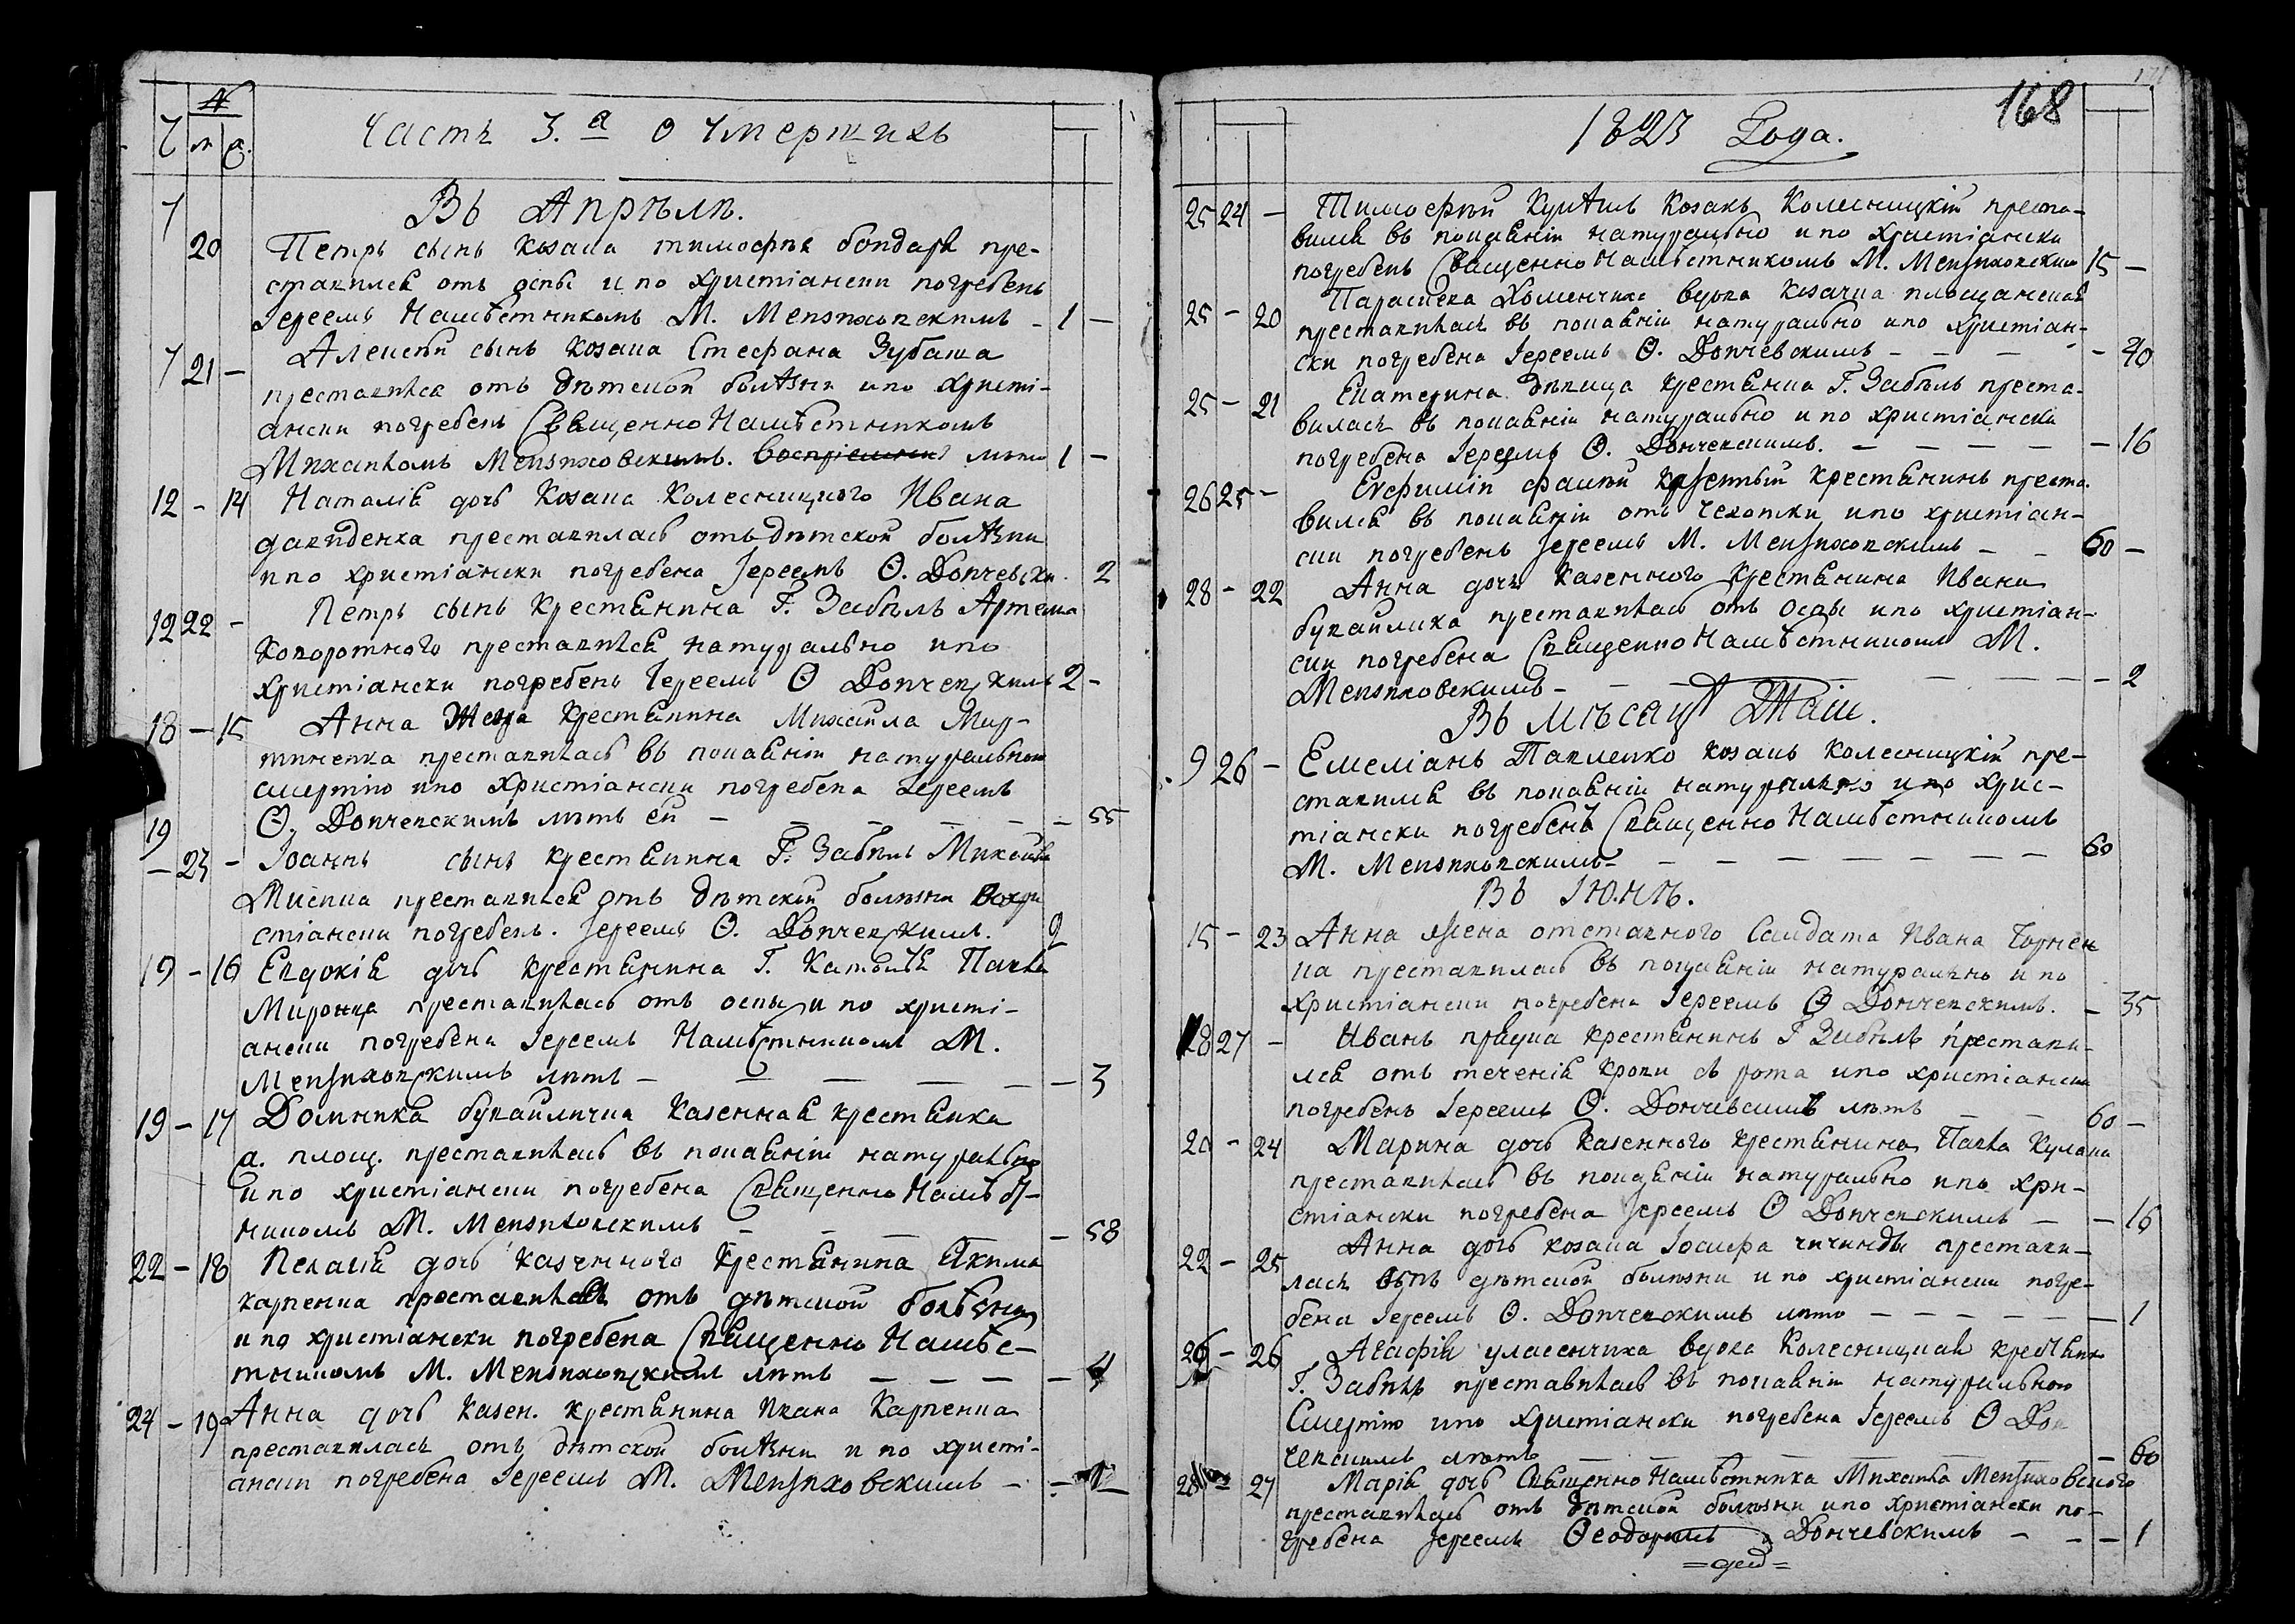 Ч № м д. Часть 3.а О Умершихъ
Въ Апрѣлѣ.
7 20 Петръ сынъ козака тимофѣя бондаря пре-
ставился отъ оспы и по христіански погребенъ
Іереемъ Намѣстникомъ М. Мензиховскимъ - 1 -
7 21 - Алексѣй сынъ козака Стефана Зубаша
преставился отъ дѣтской болѣзни и по христі-
ански погребенъ Священно Намѣстникомъ
Михаиломъ Мензиховскимъ. лѣта 1 -
12 - 14 Наталія дочь Козака Колесницкого Ивана
давиденка преставилась отъ дѣтской болѣзни
и по христіански погребена Іереемъ Ѳ. Дончевски. 2
12 22 - Петръ сынъ крестянина Г. Забѣлъ Артема
коворотного преставился натурально и по
христіански погребенъ Іереемъ Ѳ Дончевскимъ 2 -
18 - 15 Анна Жена крестянина Михаила Мир-
тиненка преставилась въ покаяніи натуральною
смертію и по христіански погребена Іереемъ
Ѳ. Дончевскимъ лѣтъ ей - - - - - 55
19 - 23 - Іоаннъ сынъ крестянина Г. Забѣлъ Михаила
Мисника преставился отъ дѣтской болѣзни похри
стіански погребенъ. Іереемъ Ѳ. Дончевскимъ. 2
19 - 16 Евдокія дочь крестянина Г. Павла
Миронца преставилась отъ оспы и по христі-
ански погребена Іереемъ Намѣстникомъ М.
Мензиховскимъ лѣтъ - - - - - 3
19 - 17 Домника букайличка Казенная крестянка
а. площ. преставилась въ покаяніи натурально
и по христіански погребена Священно Намѣст-
никомъ М. Мензиховскимъ - - - - 58
22 - 18 Пелагія дочь казенного крестянина Якима
карпенка преставилась отъ дѣтской болѣзни
и по христіански погребена Священно Намѣс-
тникомъ М. Мензиховскимъ лѣтъ - - - - 4
24 - 19 Анна дочь казен. крестянина Ивана Карпенка
преставилась отъ дѣтской болѣзни и по христі-
ански погребена Іереемъ М. Мензиховскимъ - -
168
1823 Года.
25 24 - Тимофѣй Козакъ Колесницкій преста-
вился въ покаяніи натурально и по христіански
погребенъ Священно Намѣстникомъ М. Мензиховскимъ 15 -
25 - 20 Параскева Хоменчиха вдова козачка площанская
преставилась въ покаяніи натурально и по христіан-
ски погребена Іереемъ Ѳ. Дончевскимъ - - - - 40
25 - 21 Екатерина дѣвица крестянка Г. Забѣлъ преста-
вилась въ покаяніи натурально и по христіански
погребена Іереемъ Ѳ. Дончевскимъ. - - - - - 16
26 25 - Евфимій крестянинъ преста-
вился въ покаяніи отъ чехотки и по христіан-
ски погребенъ Іереемъ М. Мензиховскимъ - - 60 -
28 - 22 Анна дочь казенного крестянина Ивана
букайлика преставилась отъ оспы и по христіан-
ски погребена Священно Намѣстникомъ М.
Мензиховскимъ - - - - - - 2
Въ мѣсяцѣ Маіи.
9 26 - Емеліанъ Павленко козакъ Колесницкій пре-
ставился въ покаяніи натурально и по хрис-
тіански погребенъ Священно Намѣстникомъ
М. Мензиховскимъ - - - - - - - 60
Въ Іюнѣ.
15 - 23 Анна жена отставного Салдата Ивана Чорнен
ка преставилась въ покаяніи натурально и по
христіански погребена Іереемъ Ѳ Дончевскимъ. - 35
18 27 - Иванъ крестянинъ Г Забѣлъ престави-
лся отъ теченія крови съ рота и по христіански
погребенъ Іереемъ Ѳ. Дончевскимъ лѣтъ - - 60 -
20 - 24 Марина дочь казенного крестянина Павла Кулака
преставилась въ покаяніи натурально и по хри-
стіански погребена Іереемъ Ѳ Дончевскимъ - - 16
22 - 25 Анна дочь козака Іосифа чичинды престави-
лась отъ дѣтской болѣзни и по христіански погре-
бена Іереемъ Ѳ. Дончевскимъ лѣто - - - - - 1
26 - 26 Агафія уласенчиха вдова Колесницкая крестянка
Г. Забѣлъ преставилась въ покаяніи натуральною
Смертію и по христіански погребена Іереемъ Ѳ Дон
чевскимъ лѣтъ - - - - - 60
28 27 Марія дочь Священно Намѣстника Михаила Мензиховского
преставилась отъ дѣтской болѣзни и по христіански по-
гребена Іереемъ Ѳеодоромъ Дончевскимъ - - - 1